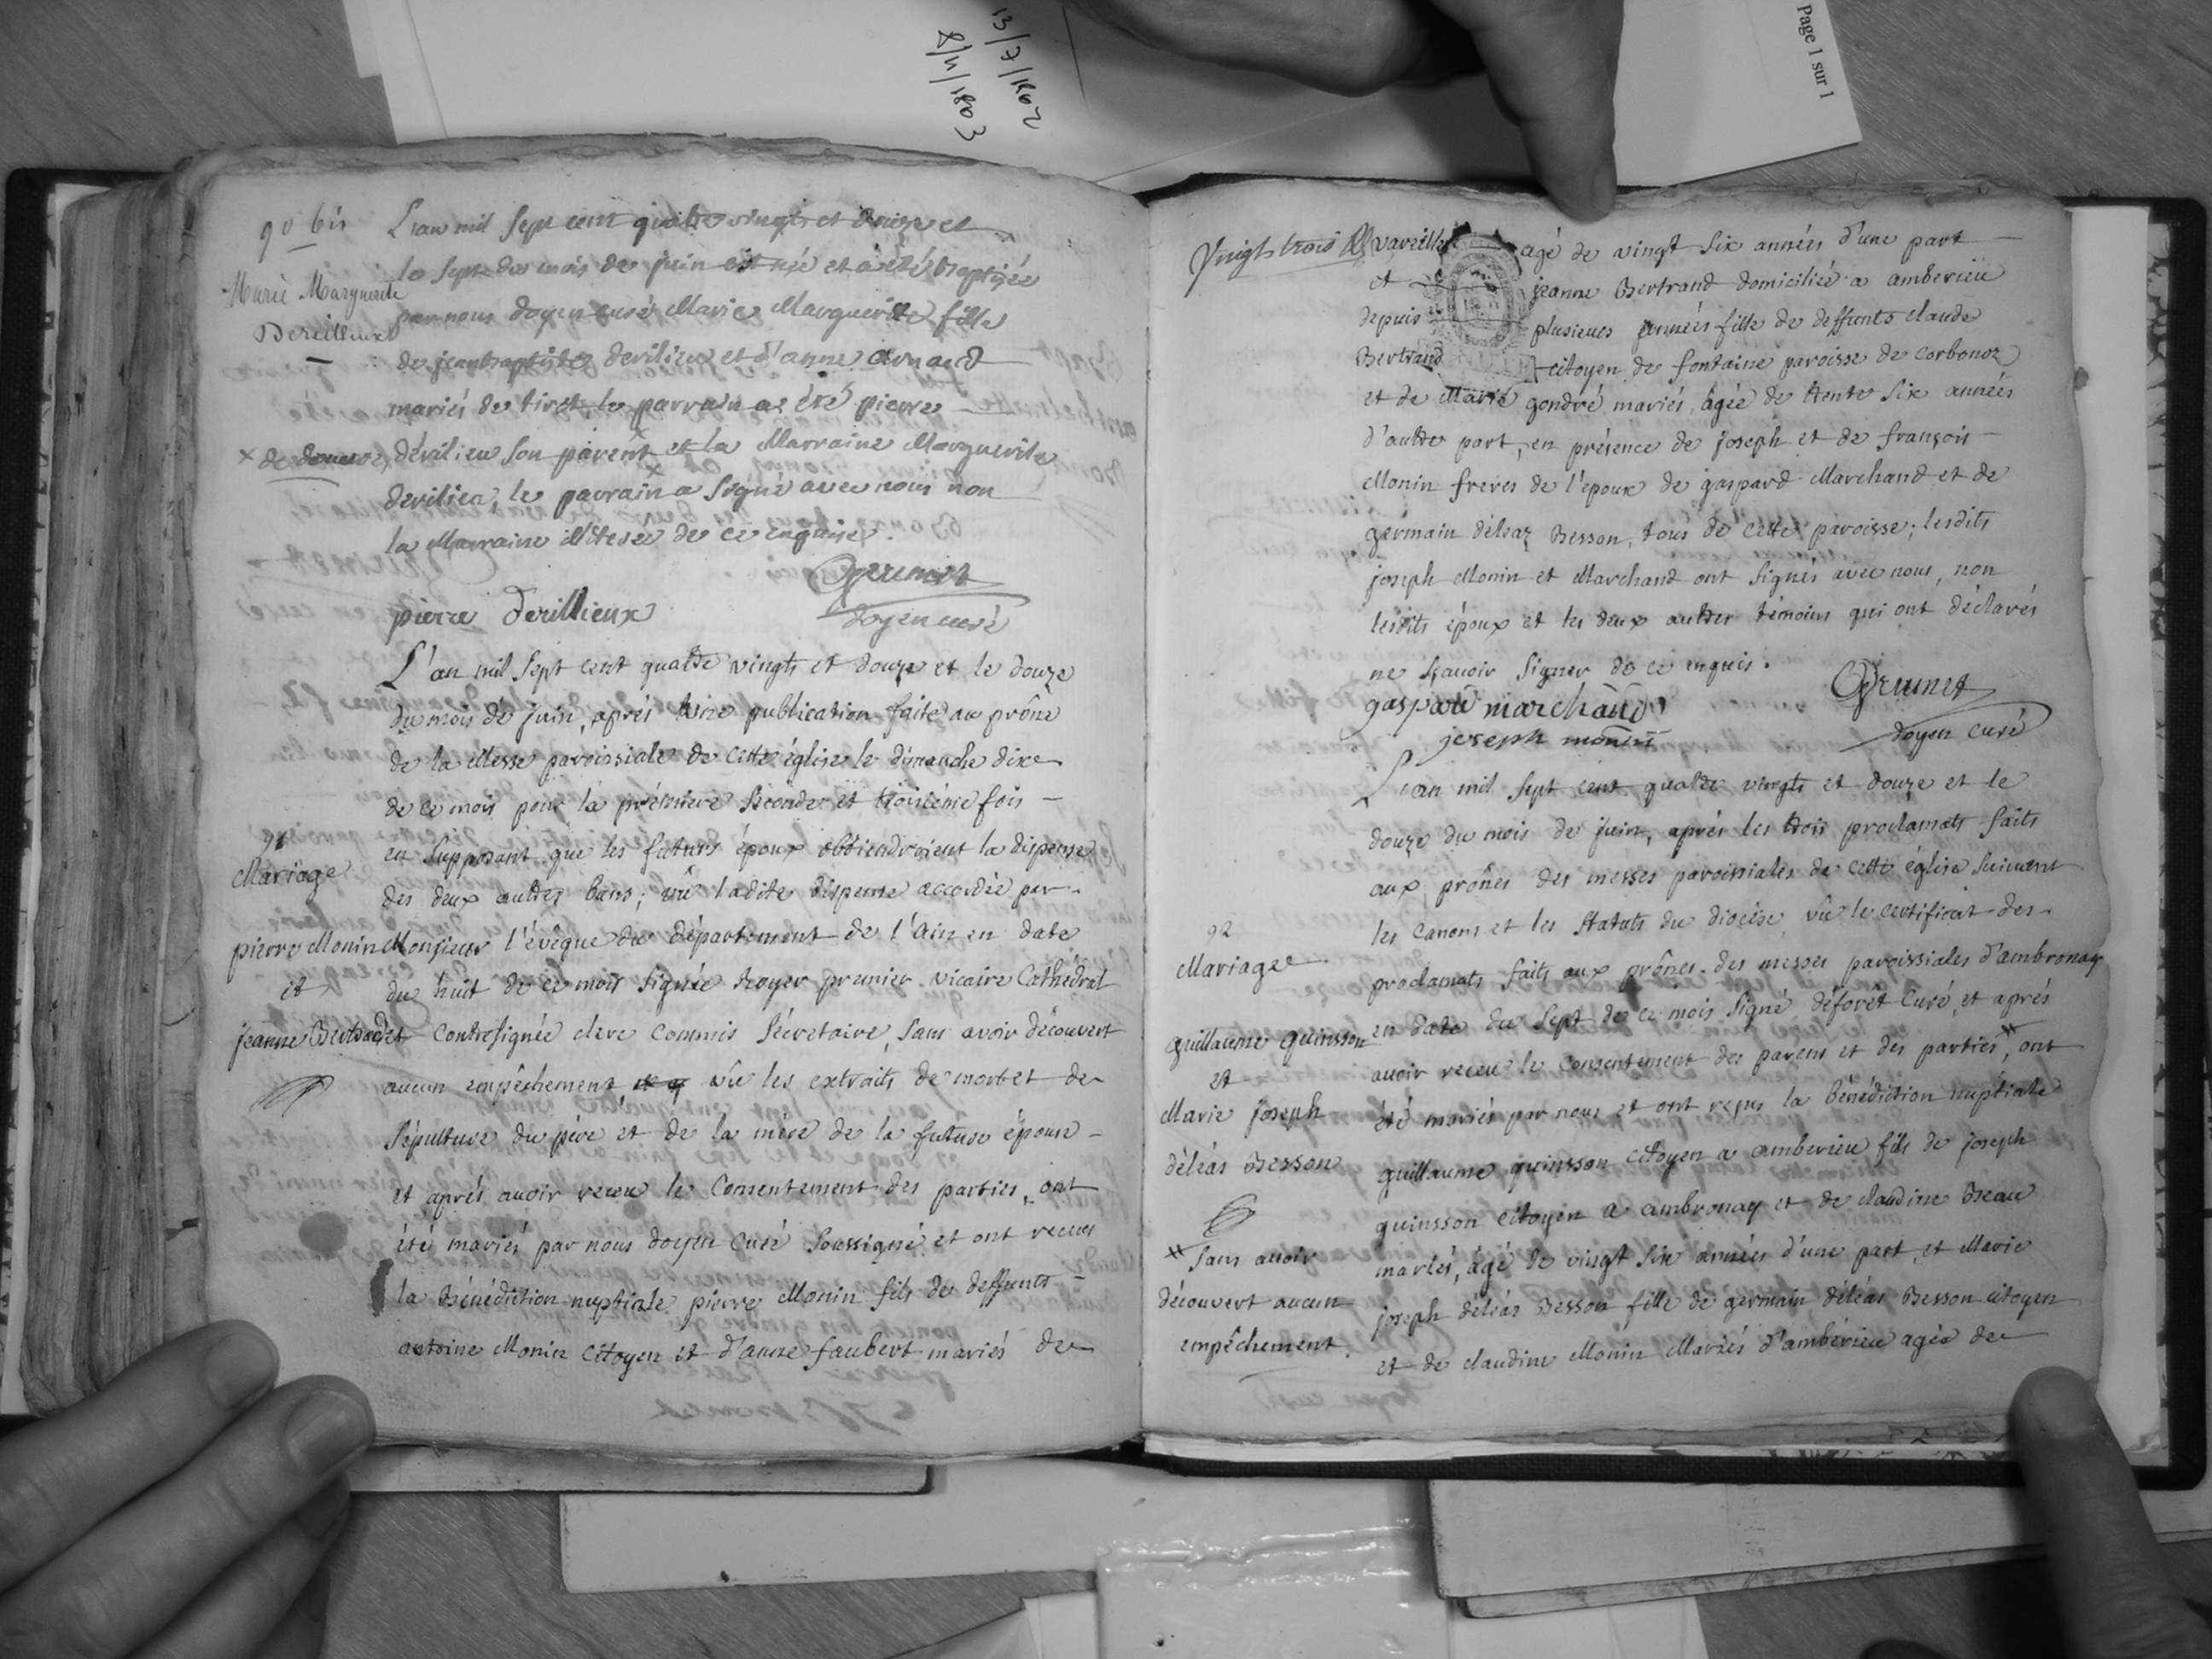 13/7/1802
8/11/1803
Page 1 sur 1
90 bis
Marie Marguerite
Derillieux
L'an mil sept cent quatre vingts et douze et
le sept du mois de juin est née et a été baptisée
par nous doyen curé Marie Marguerite fille
de jean baptiste derilieu et d'anne arnaud
mariés de tiret, le parrain a été pierre
× de douvre derilieu son parent × et la Marraine Marguerite
derilieu, le parrain a signé avec nous non
la Marraine illiterée de ce enquise.
pierre Derillieux
Grumet
doyen curé
91
Mariage
pierre Monin
et
jeanne Bertrand
L'an mil sept cent quatre vingts et douze et le douze
du mois de juin, aprés une publication faite au prône
de la Messe paroissiale de cette église le dimanche dix
de ce mois pour la prémiere seconde et troisiéme fois
en supposant que les futurs époux obtiendroient la dispense
des deux autres bans; vû ladite dispense accordée par
Monsieur l'évêque du département de l'ain en date
du huit de ce mois signée Royer premier vicaire Cathédral
et contresignée clerc commis sécretaire, sans avoir découvert
aucun empêchement vû les extraits de mort et de
sépulture du pére et de la mére de la future épouse
et aprés avoir receu le consentement des parties, ont
été mariés par nous doyen curé soussigné et ont receus
la Bénédiction nuptiale pierre Monin fils de deffunts
antoine Monin citoyen et d'anne faubert mariés de
Vingt trois
vareille agé de vingt six années d'une part
et jeanne Bertrand domiciliée a amberieu
depuis plusieurs années fille de deffunts claude
Bertrand citoyen de fontaine paroisse de corbonoz
et de Marie gondré mariés, âgée de trente six années
d'autre part, en présence de joseph et de françois
Monin freres de l'époux de gaspard Marchand et de
germain déléaz Besson, tous de cette paroisse; lesdits
joseph Monin et Marchand ont signés avec nous, non
lesdits époux et les deux autres témoins qui ont déclarés
ne sçavoir signer de ce enquis.
gaspard marchand
joseph monin
Grumet
doyen curé
92
Mariage
guillaume quinsson
et
Marie joseph
déléas Besson
L'an mil sept cent quatre vingts et douze et le
douze du mois de juin, aprés les trois proclamats faits
aux prônes des messes paroissiales de cette église suivant
les canons et les statuts du diocése vû le certificat des
proclamats faits aux prônes des messes paroissiales d'ambronay
en date du sept de ce mois signé déforêt curé, et aprés
avoir receu le consentement des parens et des parties ⌗, ont
été mariés par nous et ont reçus la bénédiction nuptiale
guillaume quinsson citoyen a amberieu fils de joseph
quinsson citoyen a ambronay et de claudine Beau
mariés, âgé de vingt six années d'une part, et Marie
joseph déléas Besson fille de germain déléas Besson citoyen
et de claudine Monin Mariés d'ambérieu agée de
⌗ sans avoir
découvert aucun
empêchement.